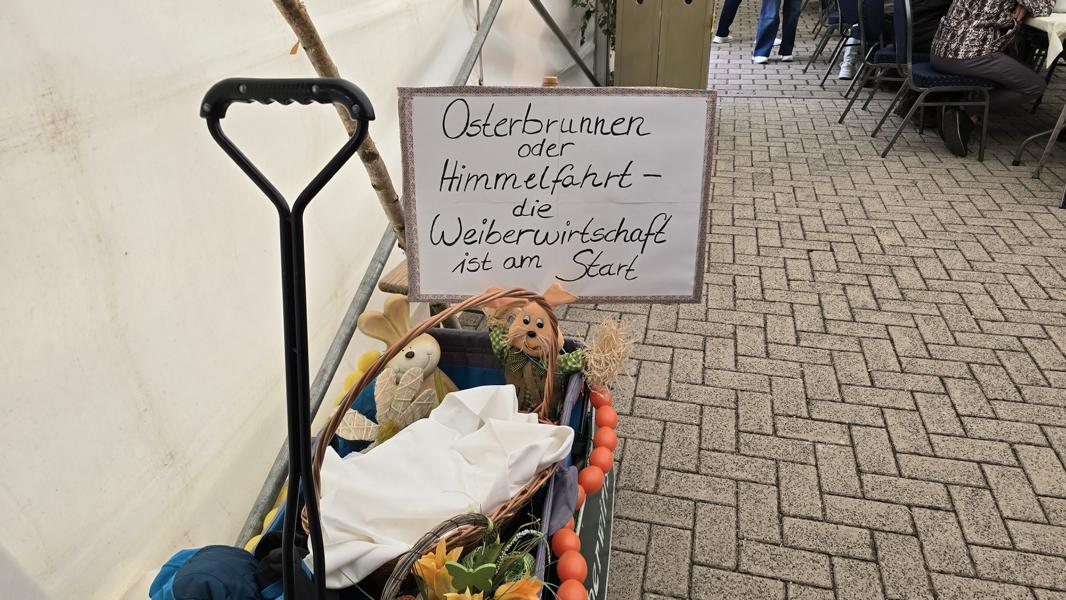 Osterbrunnen
oder
Himmelfahrt –
die
Weiberwirtschaft
ist am Start